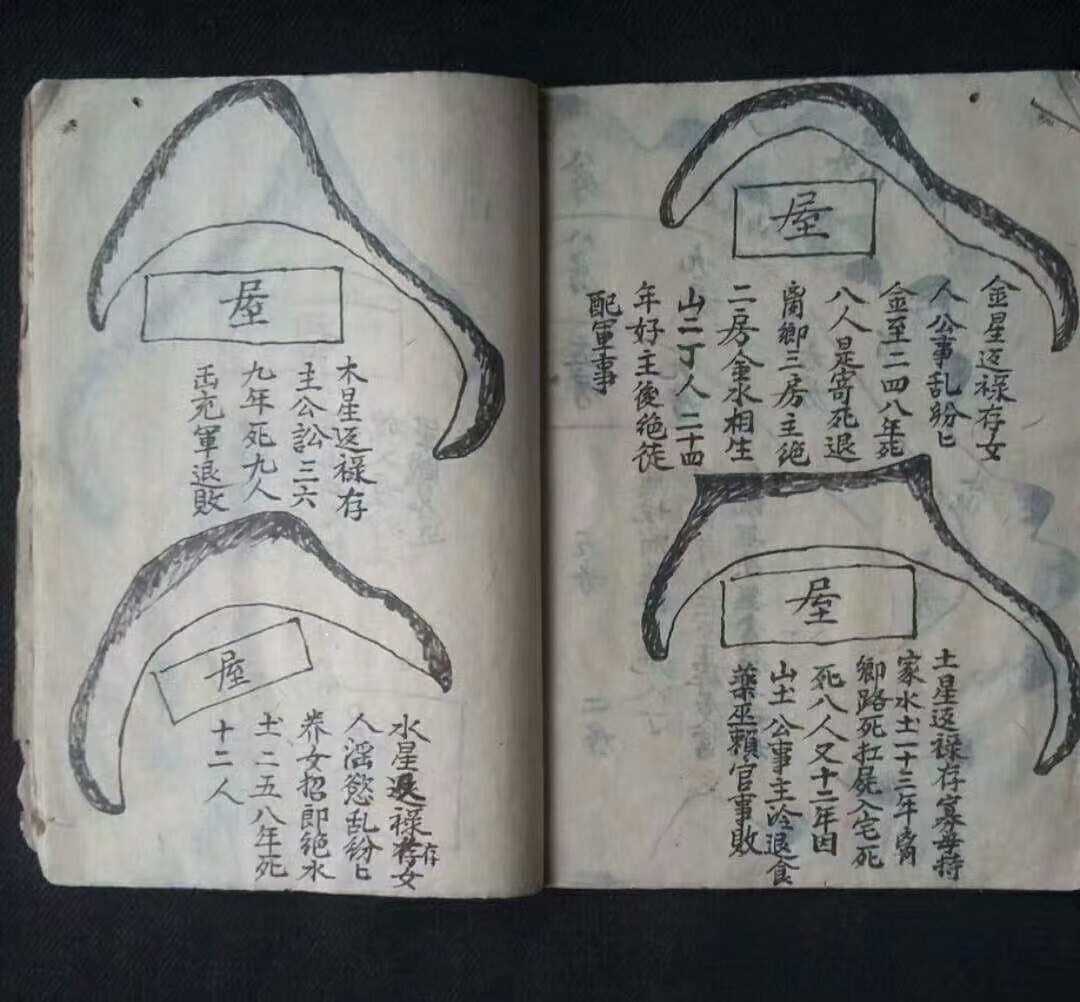 屋
金星返禄存女
人公事乱紛匕
金至二四八年死
八人是寄死退
离鄉三房主絶
二房金水相生
山二丁人二十四
年好主後绝徒
配軍事
屋
土星返禄存寡母持
家水土一十三年离
鄉路死扛屍入宅死
死八人又十二年因
山土公事主冷退食
藥巫賴官事敗
屋
木星返禄存
主公訟三六
九年死九人
充軍退敗
屋
水星返禄存女
人淫慾乱紛匕
养女招郎絶水
土二五八年死
十二人